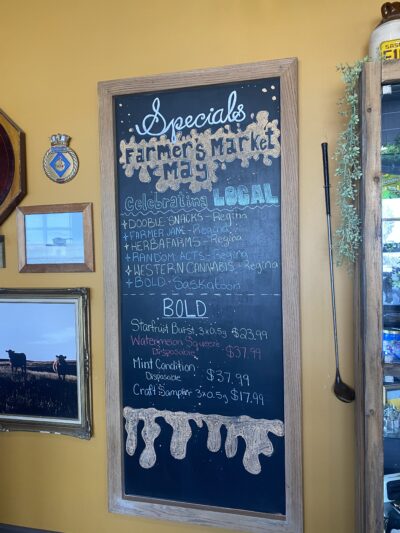 Specials
Farmer's Market
May
Celebrating LOCAL
+DOOBIE SNACKS - Regina
+FARMER JANE - Regina
+HERBAFARMS - Regina
+RANDOM ACTS - Regina
+WESTERN CANNABIS - Regina
+BOLD - Saskatoon
BOLD
Starfruit Burst 3x0.5g $23.99
Watermelon Squeeze
Disposable $37.99
Mint Condition
Disposable $37.99
Craft Sampler 3x0.5g $17.99